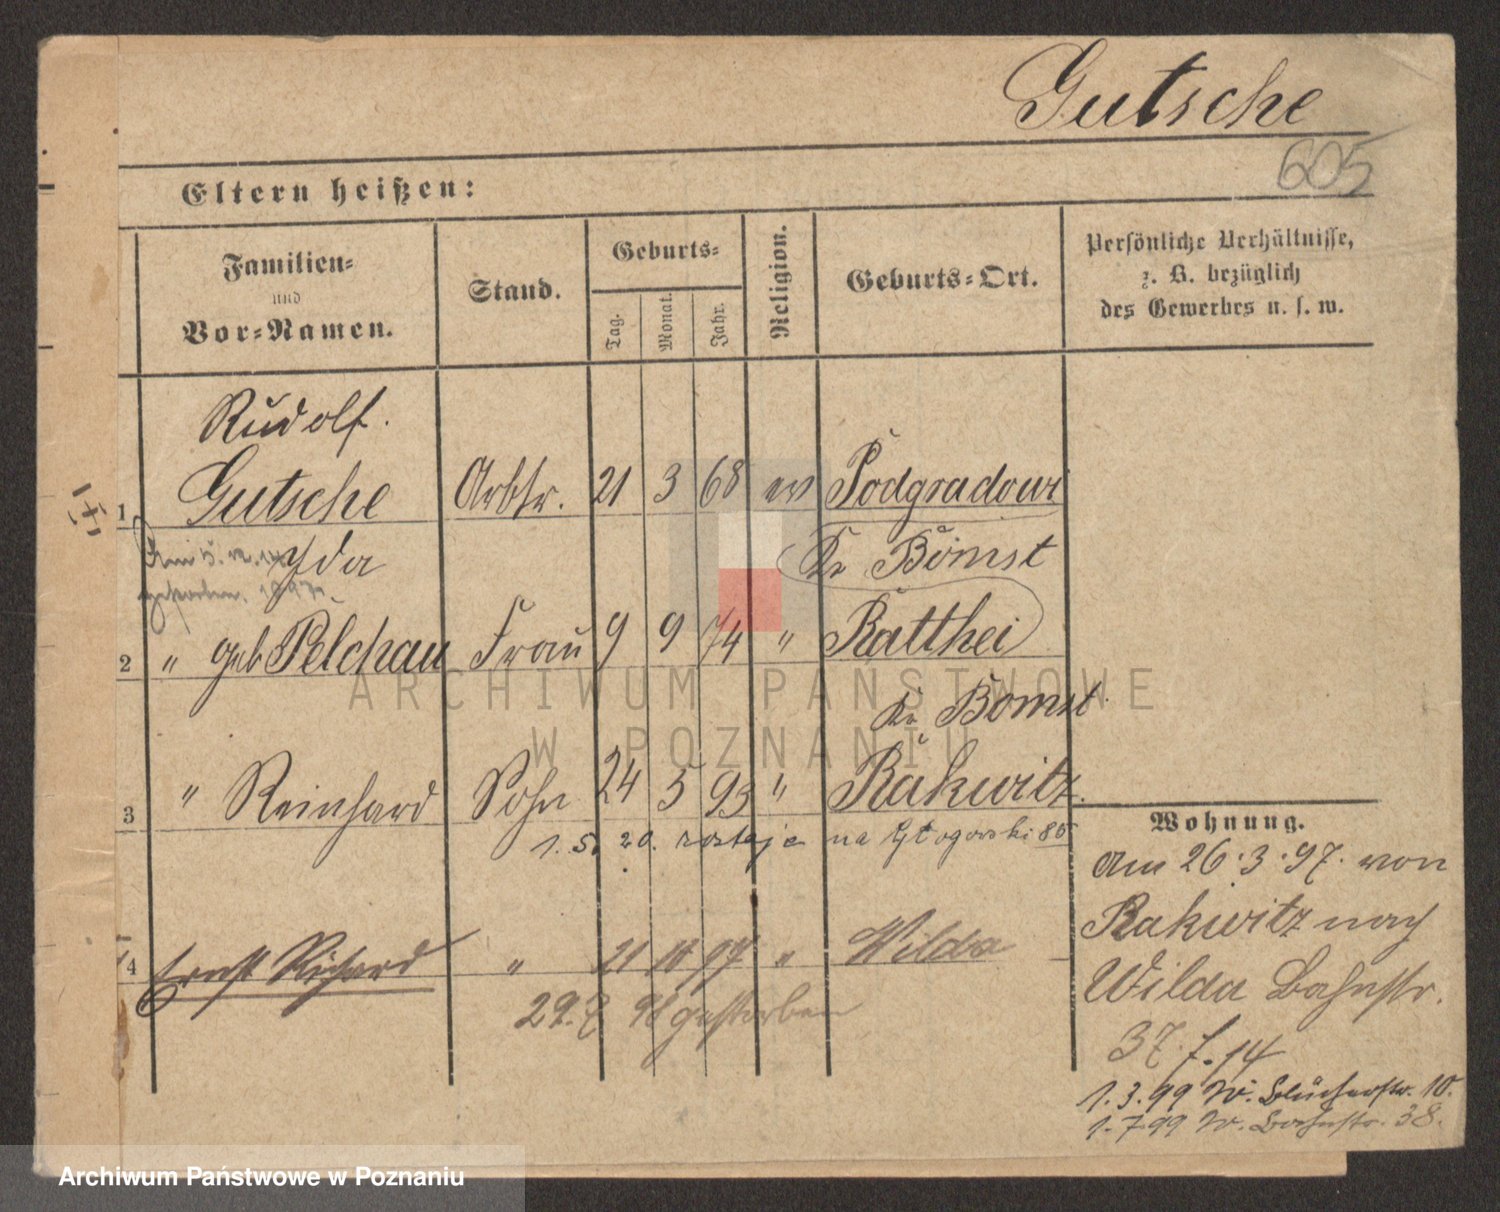 Gutsche
605
Eltern heißen:
Familien=
und
Vor=Namen.
Stand.
Geburts=
Tag.
Monat.
Jahr.
Religion.
Geburts=Ort.
Persönliche Verhältnisse,
z. B. bezüglich
des Gewerbes u. s. w.
Rudolf.
1 Gutsche Arbtr. 21 3 68 ev Podgradowr
Yda Kr Bomst
2 " geb Pelchau Frau 9 9 74 " Ratthei
Kr Bomst
3 " Reinhard Sohn 24 5 93 " Rakwitz.
1. 5. 20. zostaje na 85
4 Ernst Richard " 21 10 97 " Wilda
29. 7 98 gestorben
Wohnung.
Am 26.3.97. von
Rakwitz nach
Wilda Bahnstr.
37. f. 14
1. 3. 99 W. Blücherstr. 10.
1. 7. 99 W. Bahnstr. 38.
ARCHIWUM PAŃSTWOWE
W POZNANIU
Archiwum Państwowe w Poznaniu